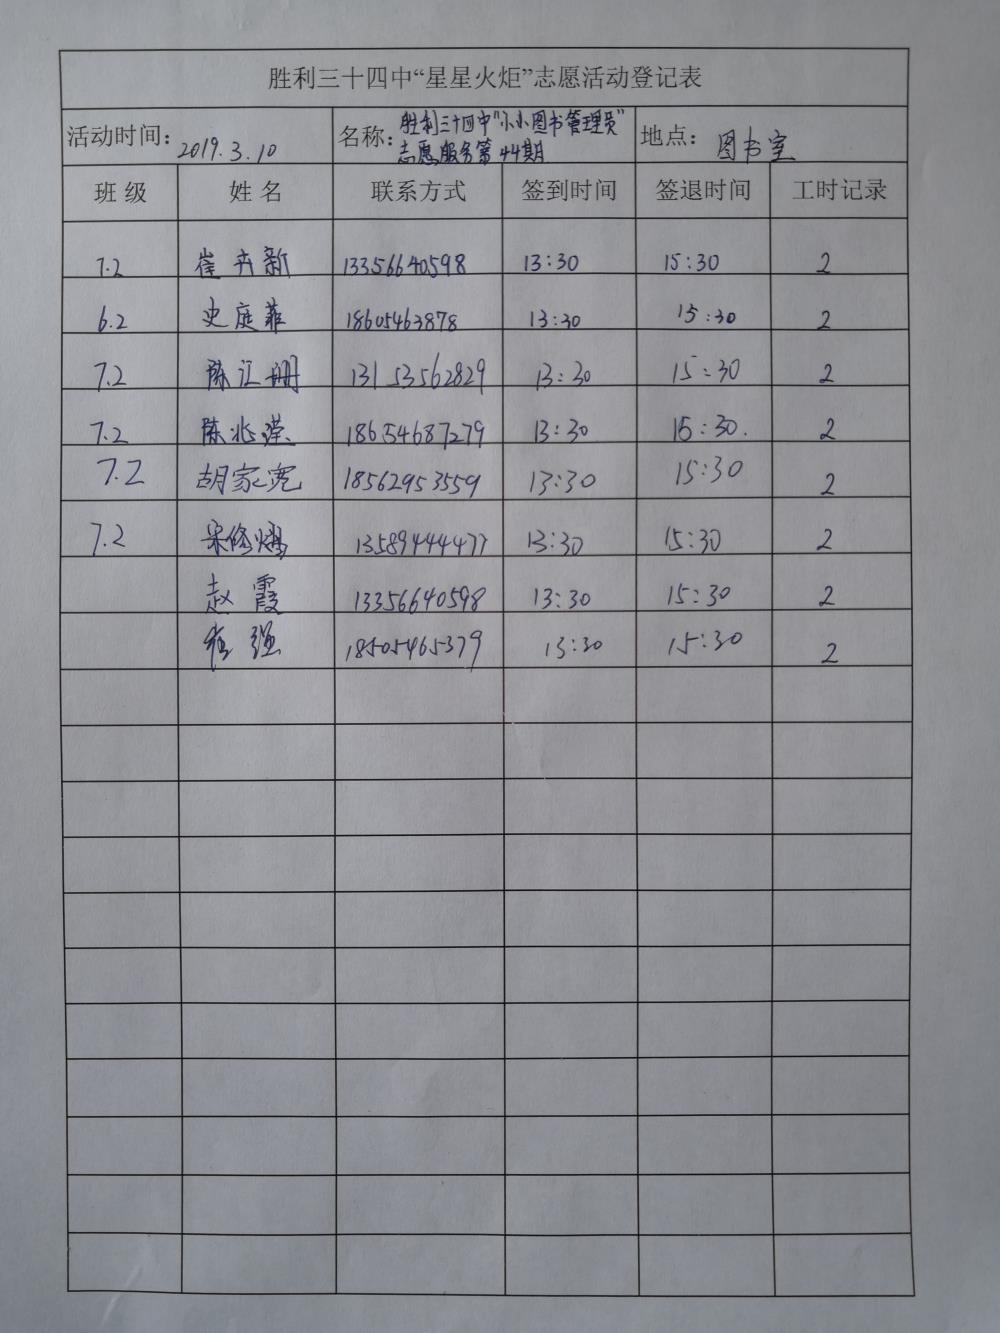 胜利三十四中“星星火炬”志愿活动登记表
活动时间: 2019.3.10 名称: 胜利三十四中“小小图书管理员” 志愿服务第44期 地点: 图书室
班 级 姓 名 联系方式 签到时间 签退时间 工时记录
7.2 崔卉新 13356640598 13:30 15:30 2
6.2 史庭菲 18605463878 13:30 15:30 2
7.2 陈 13153562829 13:30 15:30 2
7.2 陈兆滢 18654687279 13:30 15:30. 2
7.2 胡家宽 18562953559 13:30 15:30 2
7.2 宋修 13589444477 13:30 15:30 2
赵霞 13356640598 13:30 15:30 2
崔强 18505465379 13:30 15:30 2